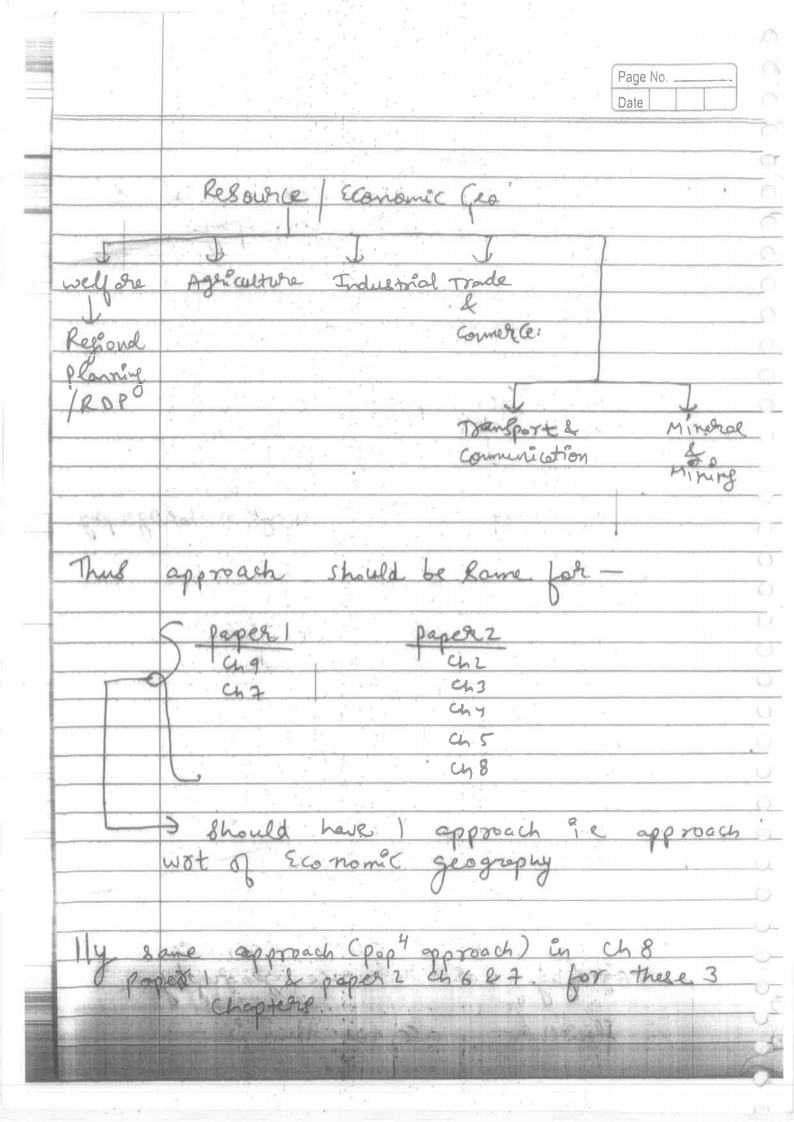 Page No.
Date
Resource / Economic Geo
Welfare Agriculture Industrial Trade
&
Commerce.
Regional
Planning
/RDP
Transport & Mineral
Communication &
Mining
Thus approach should be same for —
Paper 1 Paper 2
Ch 9 Ch 2
Ch 7 Ch 3
Ch 4
Ch 5
Ch 8
→ Should have 1 approach i.e approach
wrt of Economic geography
lly same approach (popⁿ approach) in Ch 8
paper 1 & paper 2 Ch 6 & 7. for these 3
chapters.